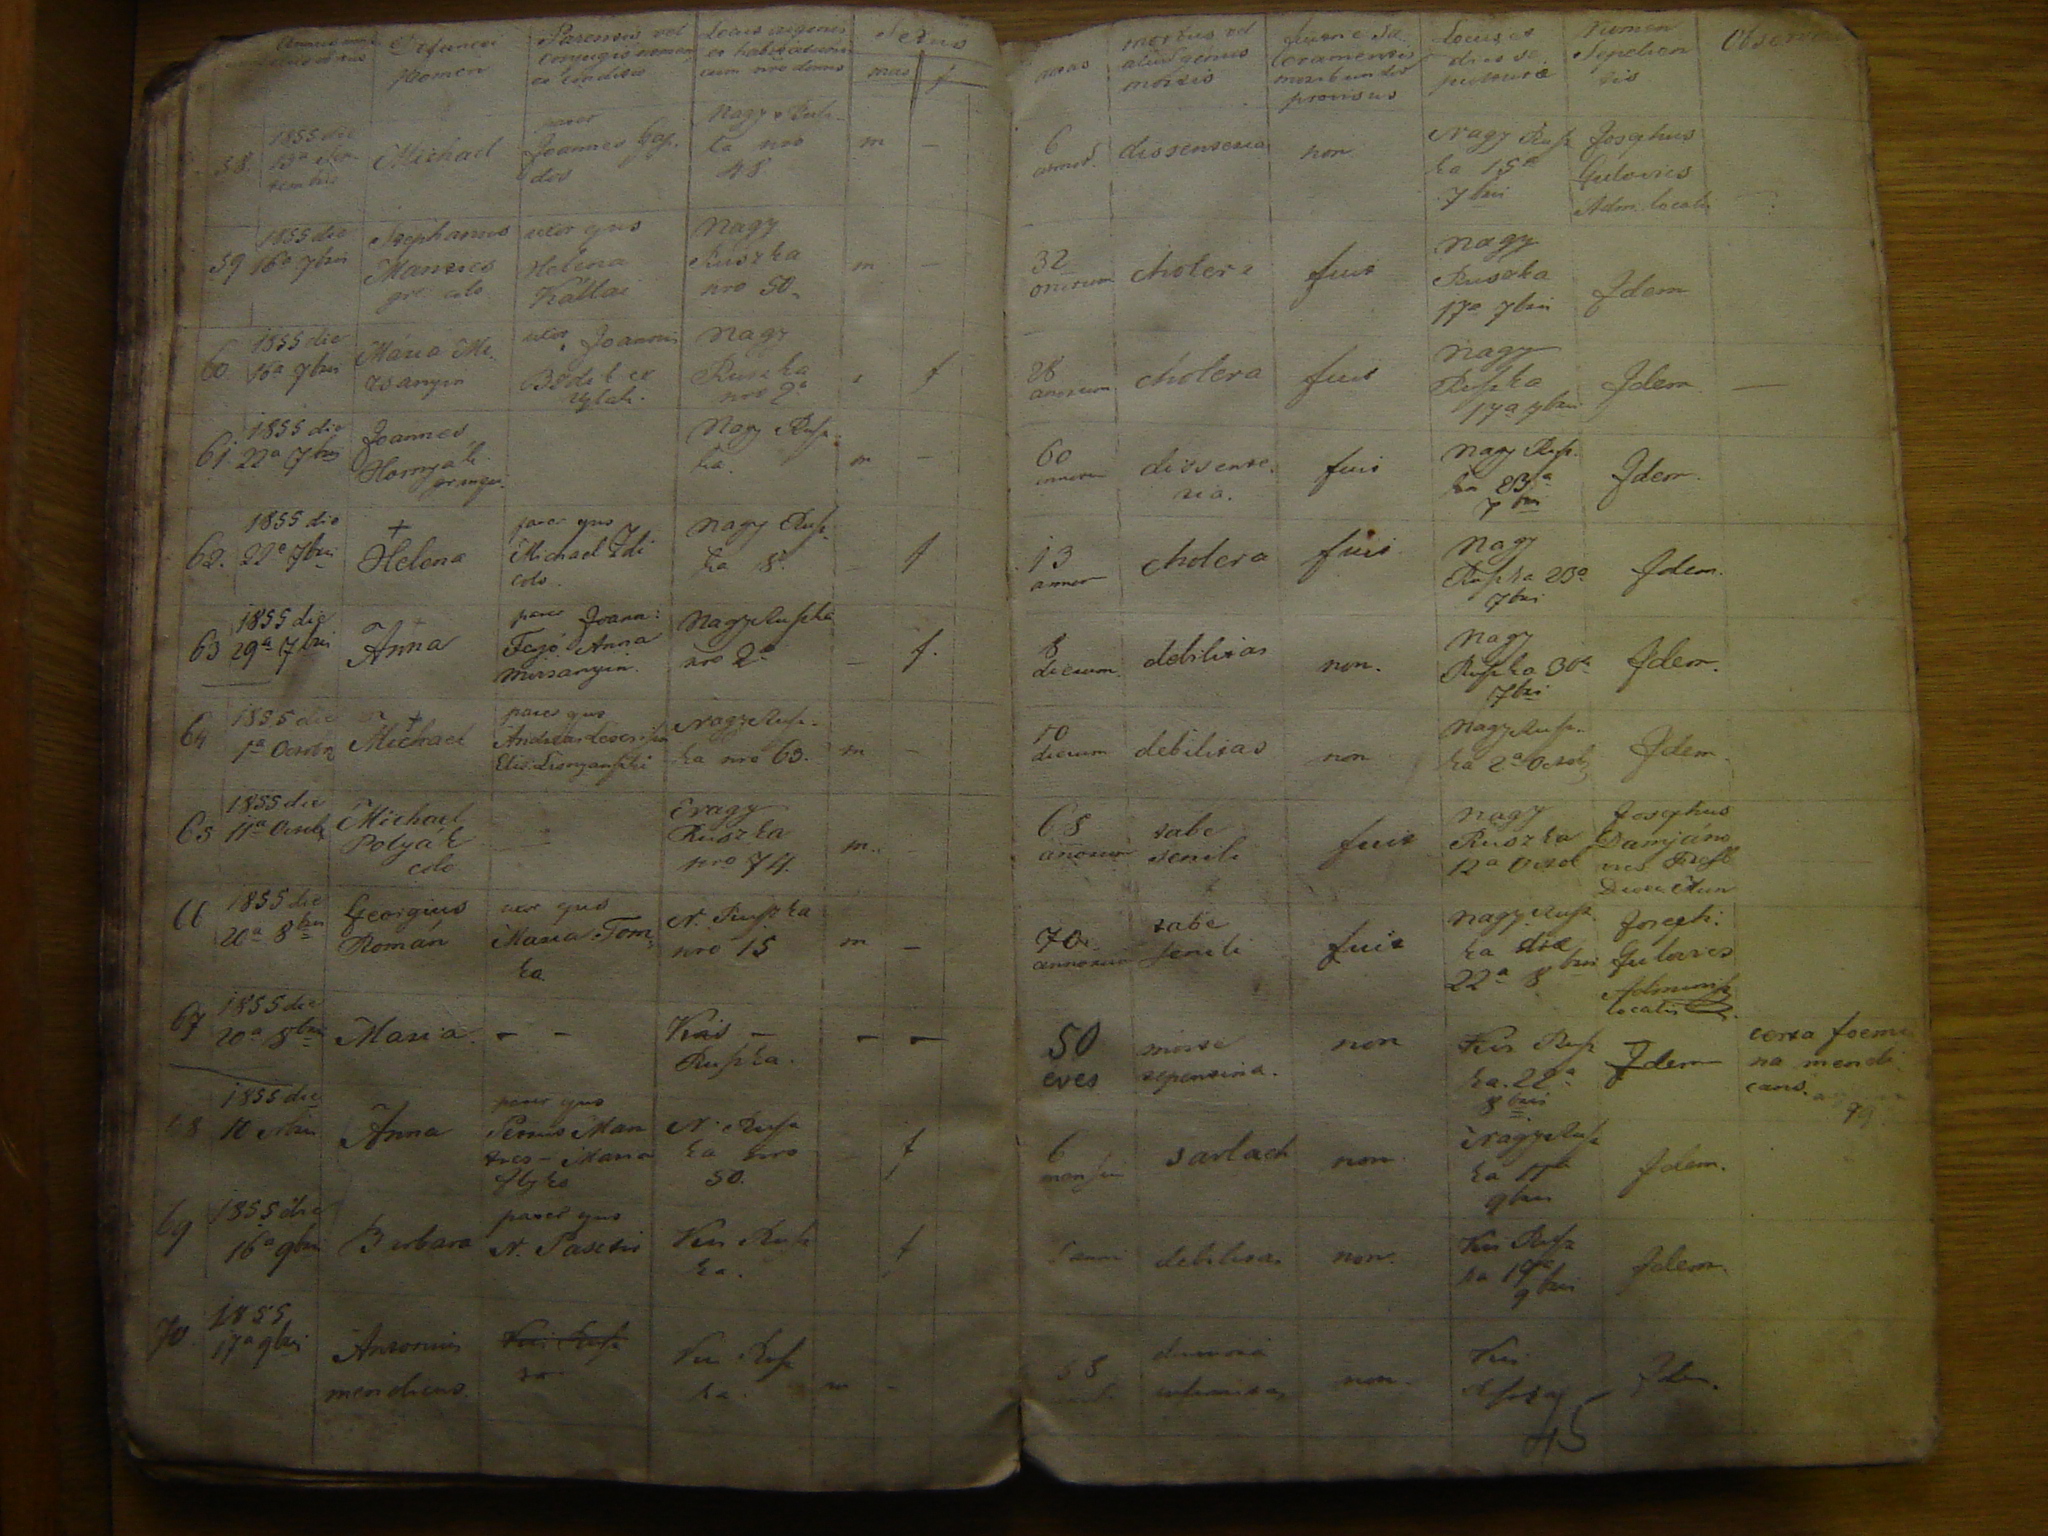 Defuncti
Nomen
Parentis vel
conjugis nomen
et conditio
Locus originis
et habitationis
cum nro domus
Sexus
mas f
aetas
morbus vel
aliud genus
mortis
fuitne Sa
cramentis
moribundor
provisus
Locus et
dies se
pulturae
Numen
Sepelien
tis
Observa
58. 1855 die
13a Sep
tembris
Michael
pater
Joannes
Nagy Rusz-
ka nro
48
m –
6
annor.
dissenteria
non
Nagy Rusz
ka 15a
7bri
Josephus
Gulovics
Adm. localis
59 1855 die
16a 7bri
Stephanus
Mantics
gr. colo
uxor ejus
Helena
Kállai
Nagy
Ruszka
nro 50.
m –
32
annorum
cholera
fuit
Nagy
Ruszka
17a 7bri
Idem
60 1855 die
16a 7bri
Maria Mi-
tsanyin
uxor Joannis
Nagy
Ruszka
nro 2a
f
28
annorum
cholera
fuit
Nagy
Ruszka
17a 7bri
Idem —
61. 1855 die
22a 7bri
Joannes
Hornyak
Nagy Rusz-
ka.
m –
60
annorum
dissente-
ria.
fuit
Nagy Rusz-
ka 23a
7bri
Idem.
62. 1855 die
22a 7bri
+
Helena
pater ejus
Michael Idi
colo.
Nagy Rusz-
ka 8.
– f
13
annor
cholera
fuit
Nagy
Ruszka 23a
7bri
Idem.
63 1855 die
29a 7bri
+
Anna
pater Joann:
Fejó Anna
Mitsanyin.
Nagy Ruszka
nro 2a
– f.
8
dierum.
debilitas
non.
Nagy
Ruszka 30a
7bri
Idem.
64 1855 die
1a Octobr
+
Michael
pater ejus
Nagy Rusz-
ka nro 63.
m –
10
dierum
debilitas
non
Nagy Rusz-
ka 2a Octob
Idem.
65 1855 die
11a Octob
Michael
Polyák
colo
Nagy
Ruszka
nro 74.
m.
68
annorum
tabe
senili
fuit
Nagy
Ruszka
12a Octob
Josephus
Damjáno
vics
66 1855 die
20a 8bri
Georgius
Román
uxor ejus
Maria Tom
ka
N. Ruszka
nro 15
m –
70
annorum
tabe
senili
fuit
Nagy Rusz
ka die
22a 8bri
Joseph:
Gulovics
Administ
localis
67 1855 die
20a 8bri
Maria.
– –
Kis –
Ruszka.
– –
50
éves
morte
repentina.
non
Kis Rusz
ka. 22a
8bri
Idem
certa foemi
na mendi
cans.
68 1855 die
10 9bri
Anna
pater ejus
Petrus Man
tics – Maria
N. Rusz
ka nro
50.
– f
6
mensium
sarlach
non
Nagy Rusz
ka 11a
9bri
Idem.
69 1855 die
16a 9bri
Barbara
pater ejus
Kis Rusz
ka.
f
debilitas
non.
Kis Rusz
ka 19a
9bri
Idem.
70 1855
17a 9bri
Antonius
mendicus.
Kis Rusz
ka
Kis Rusz
ka.
m –
58
non.
Kis
Idem.
45